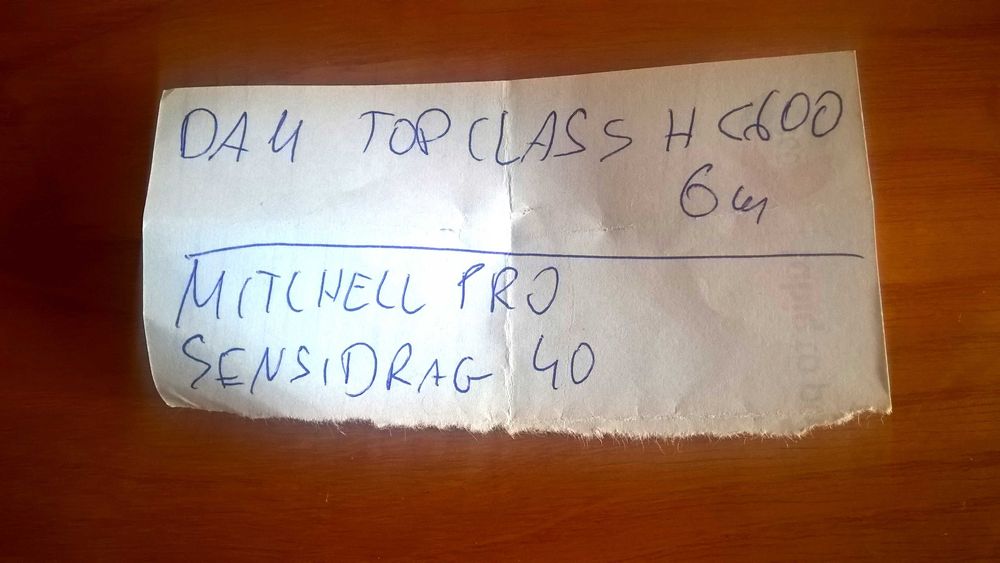 DAM TOP CLASS H C600
6m
MITCHELL PRO
SENSIDRAG 40